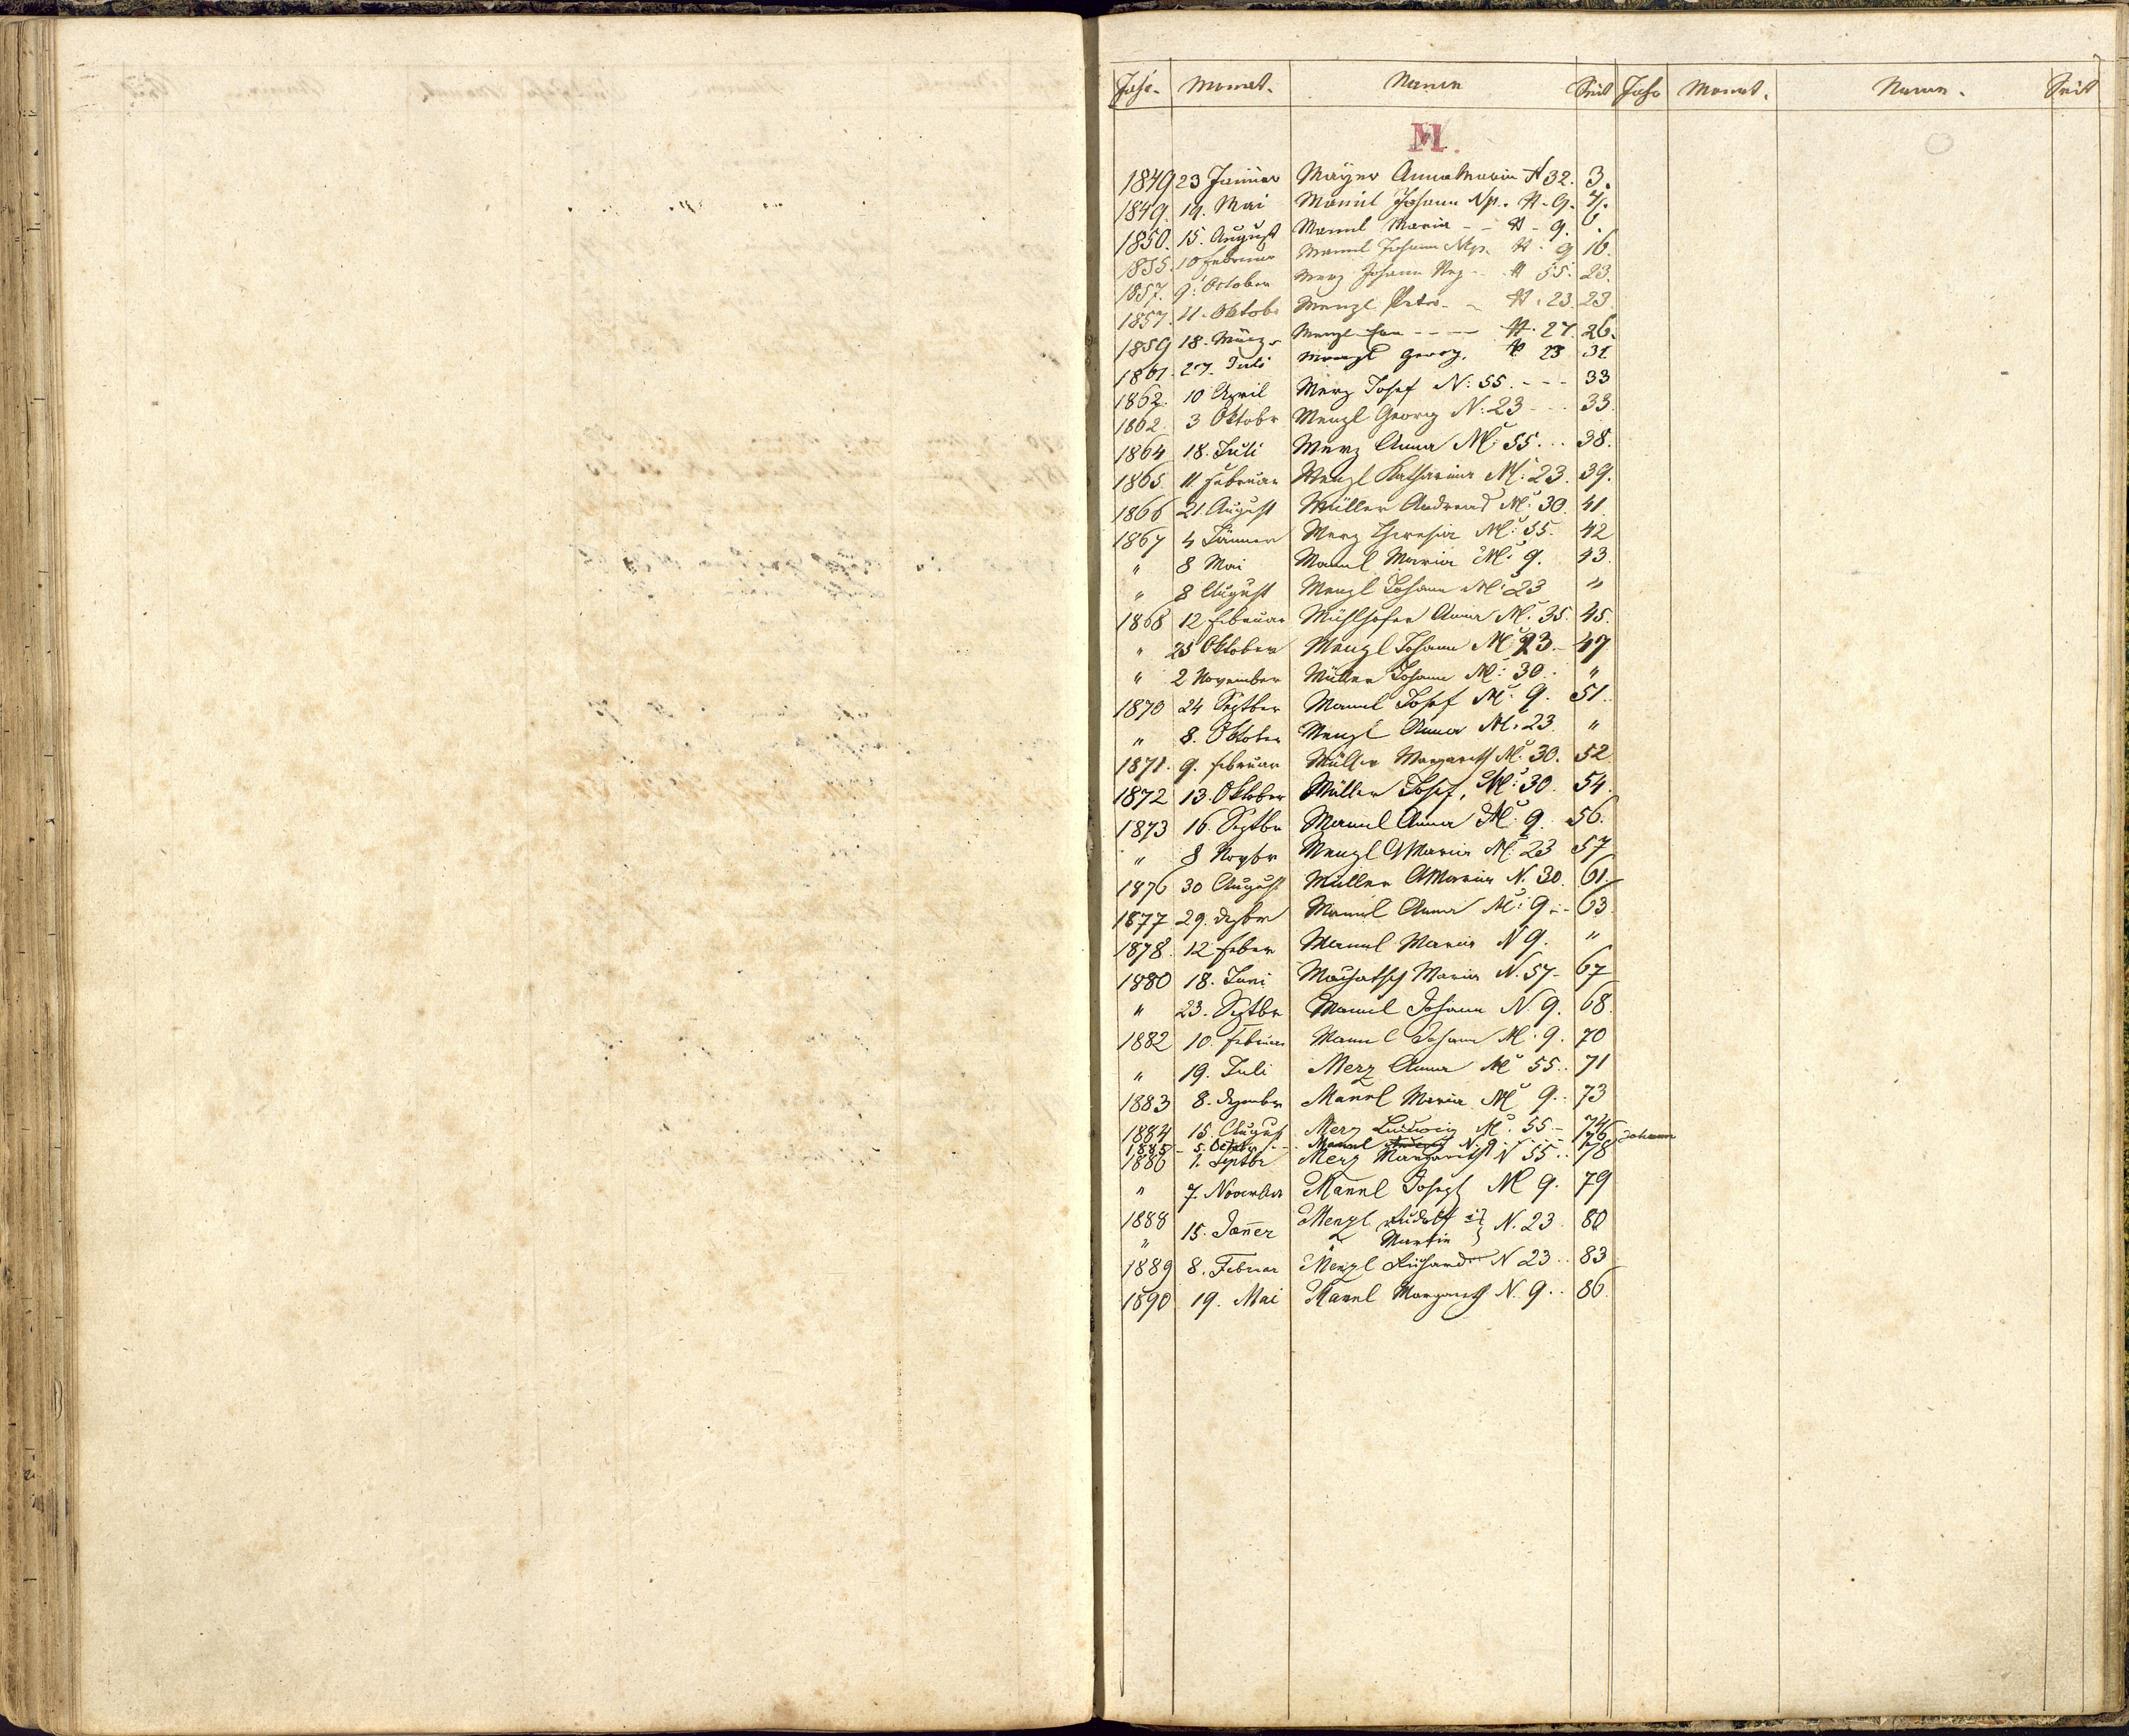 Jahr. Monat. Namen Seit Jahr Monat. Namen. Seit
M.
1849 23 Jänner Mayer Anna Maria N 32. 3.
1849. 14. Mai Mannl Johann Np. N. 9. 4.
1850. 15. August Mannl Maria - - N - 9. 6.
1855. 10 Februar Mannl Johann Nep. N. 9 16.
1857. 9. October Merz Johann Nep. - N 55. 23.
1857. 11. Oktobr Menzl Peter - N. 23. 23.
1859 18. März Menzl - - - N. 27. 26.
1861. 27. Juli Menzl Georg. N 23 31.
1862. 10 April Merz Josef N: 55. - - - 33
1862. 3 Oktobr Menzl Georg N: 23 - - - 33.
1864 18. Juli Merz Anna N: 55 . . . 38.
1865. 11. Februar Menzl Katharina N: 23. 39.
1866 21. August Müller Andreas N: 30. 41.
1867 4 Jänner Merz Theresia N: 55. 42
" 8 Mai Mannl Maria N: 9. 43.
" 8 August Menzl Johann N: 23 "
1868 12 Februar Mühlhofer Anna N. 35. 45.
" 25 Oktober Menzl Johann N: 23. - 47
" 2 November Müller Johann N: 30. "
1870 24 Septber Mannl Josef N: 9. 51.
" 8. Oktober Menzl Anna N. 23. "
1871. 9. Februar Müller Margareth N: 30. 52
1872 13. Oktober Müller Josef, N: 30. 54.
1873 16. Septbr Mannl Anna N: 9. 56.
" 8 Novbr Menzl AMaria N: 23 57
1876 30 August Müller AMaria N. 30. 61.
1877. 29. Dezbr Mannl Anna N: 9. - 63.
1878. 12 Feber Mannl Maria N 9. "
1880 18. Juni Machatsch Maria N. 57 - 67
" 23. Septbr Mannl Johann N. 9. 68.
1882 10. Februar Mannl Johann N. 9. 70
" 19. Juli Merz Anna N 55. . 71
1883 8. Dezember Mannl Maria N 9. . 73
1884 15. August Merz Ludwig N. 55 - 74
1885 - 5. October - - Mannl N. 9 - - - 76 Johann
1886 1. Septbr Merz Margareth N 55. . 78
" 7. November Mannl Joseph N 9. 79
1888 15. Jänner Menzl Rudolf N. 23. 80
" " Martin }
1889 8. Februar Menzl Richard N 23. . 83
1890 19. Mai Mannl Margareth N. 9. . 86.